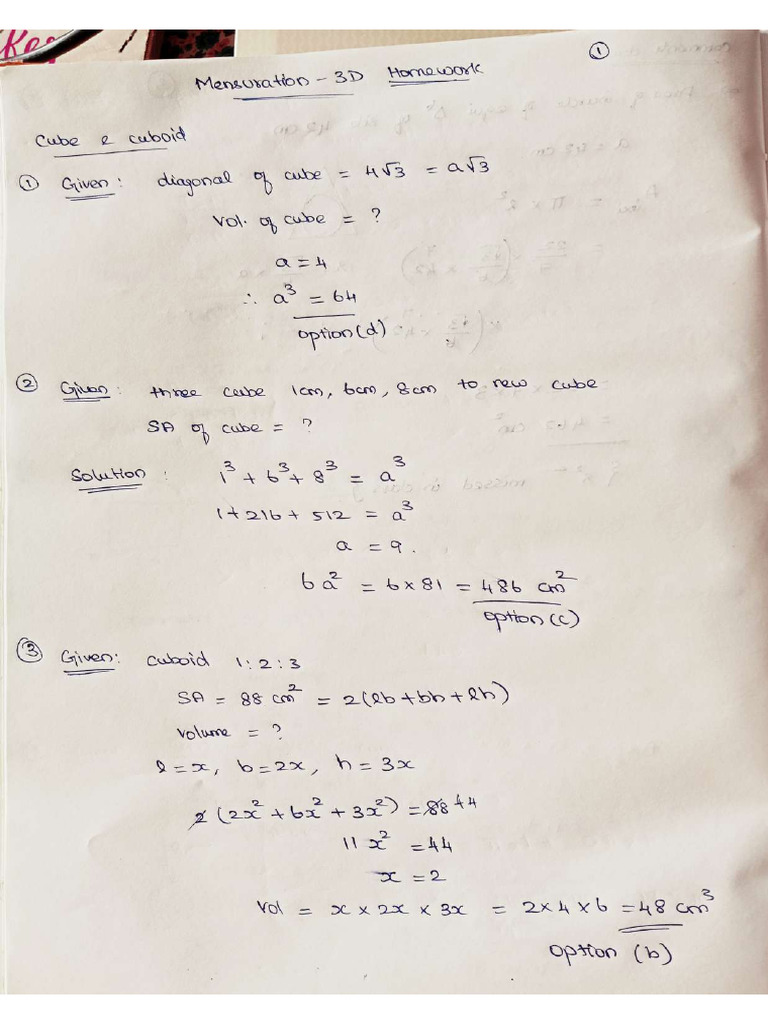 ①
Mensuration - 3D Homework
Cube & cuboid
① Given: diagonal of cube = 4√3 = a√3
Vol. of cube = ?
a = 4
∴ a³ = 64
option(d)
② Given: three cube 1cm, 6cm, 8cm to new cube
SA of cube = ?
Solution: 1³ + 6³ + 8³ = a³
1 + 216 + 512 = a³
a = 9.
6a² = 6 × 81 = 486 cm²
option(c)
③ Given: cuboid 1:2:3
SA = 88 cm² = 2(lb + bh + lh)
Volume = ?
l = x, b = 2x, h = 3x
2(2x² + 6x² + 3x²) = 88 44
11x² = 44
x = 2
Vol = x × 2x × 3x = 2 × 4 × 6 = 48 cm³
option (b)